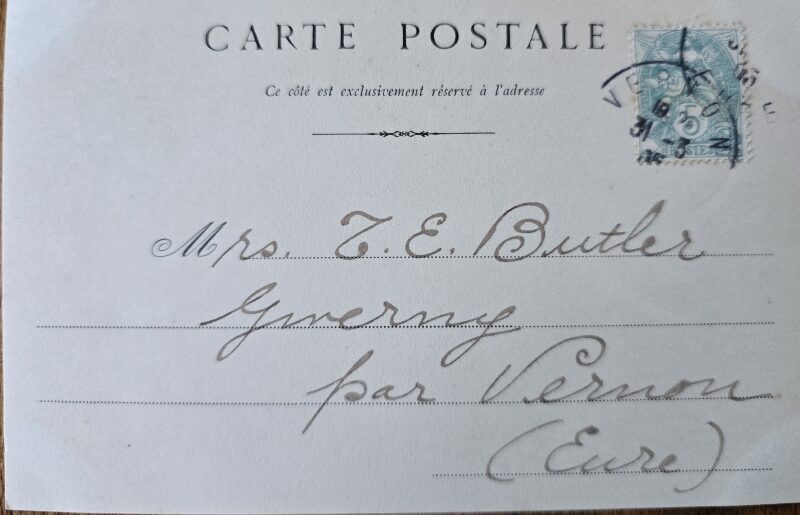 CARTE POSTALE
Ce côté est exclusivement réservé à l'adresse
31 -3
05
5
POSTES
Mrs. T. E. Butler
Giverny
par Vernon
(Eure)